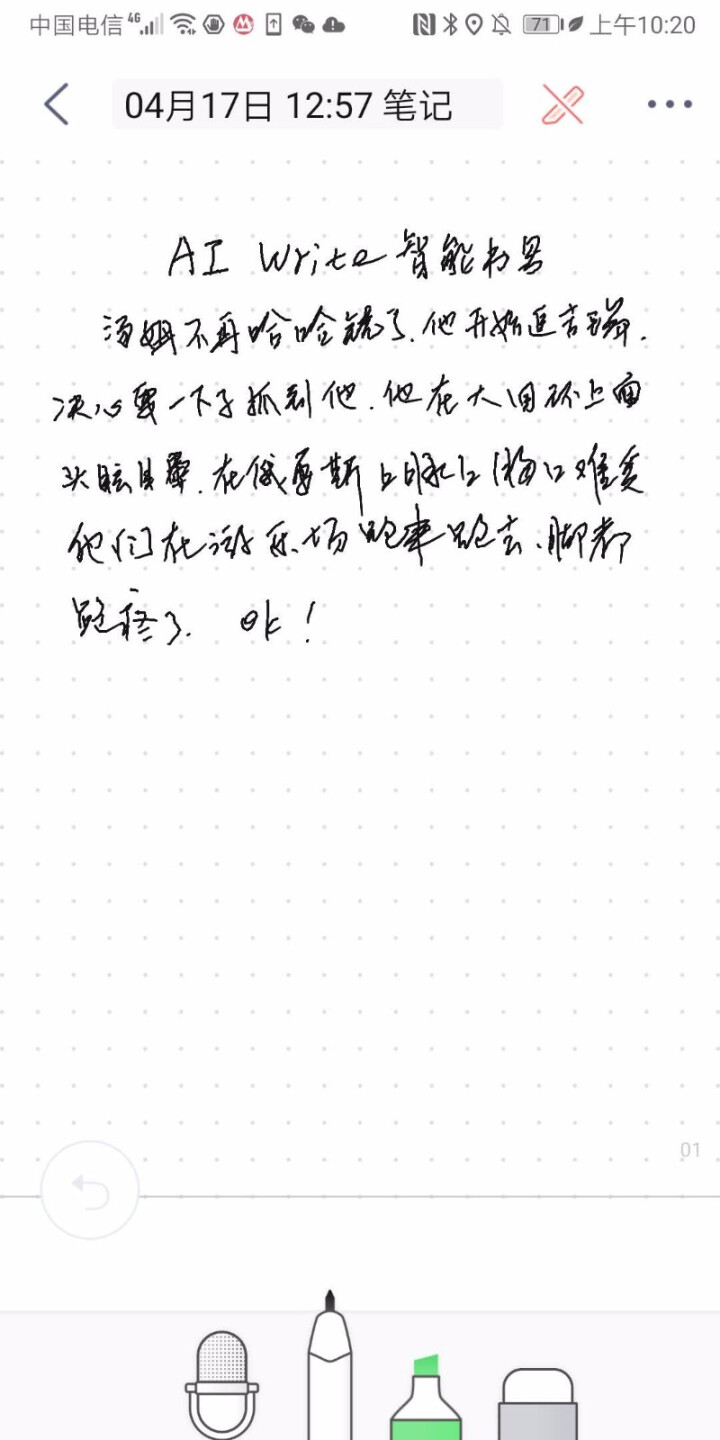 中国电信 4G 71 上午10:20
04月17日 12:57 笔记
AI Write 智能书写
汤姆不再哈哈镜了.他开始追杰瑞.
决心要一下子抓到他.他在大回环上面
头眩目晕.在俄罗斯
他们在游乐场跑来跑去、脚都
跑疼了. ok!
01